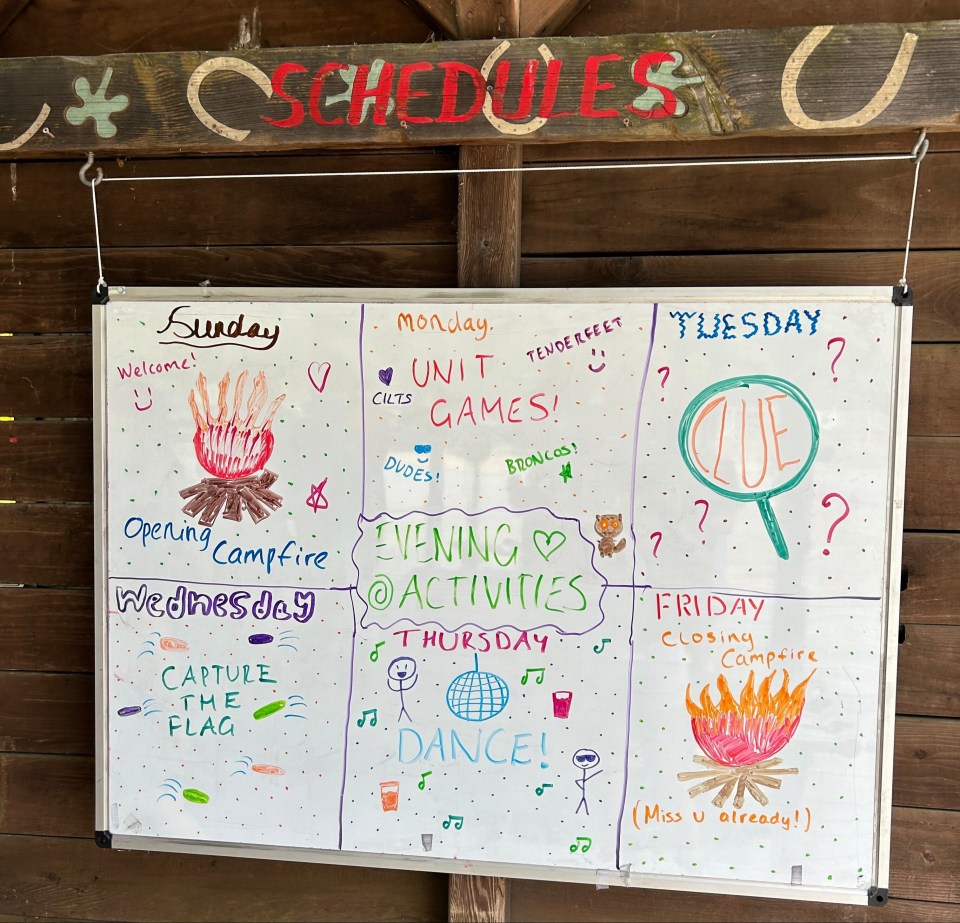 SCHEDULES
Sunday
Welcome!
Opening
Campfire
Monday.
TENDERFEET
UNIT
GAMES!
CILTS
DUDES!
BRONCOS!
TUESDAY
?
?
CLUE
?
?
?
EVENING
@ACTIVITIES
Wednesday
CAPTURE
THE
FLAG
THURSDAY
DANCE!
FRIDAY
Closing
Campfire
(Miss u already!)